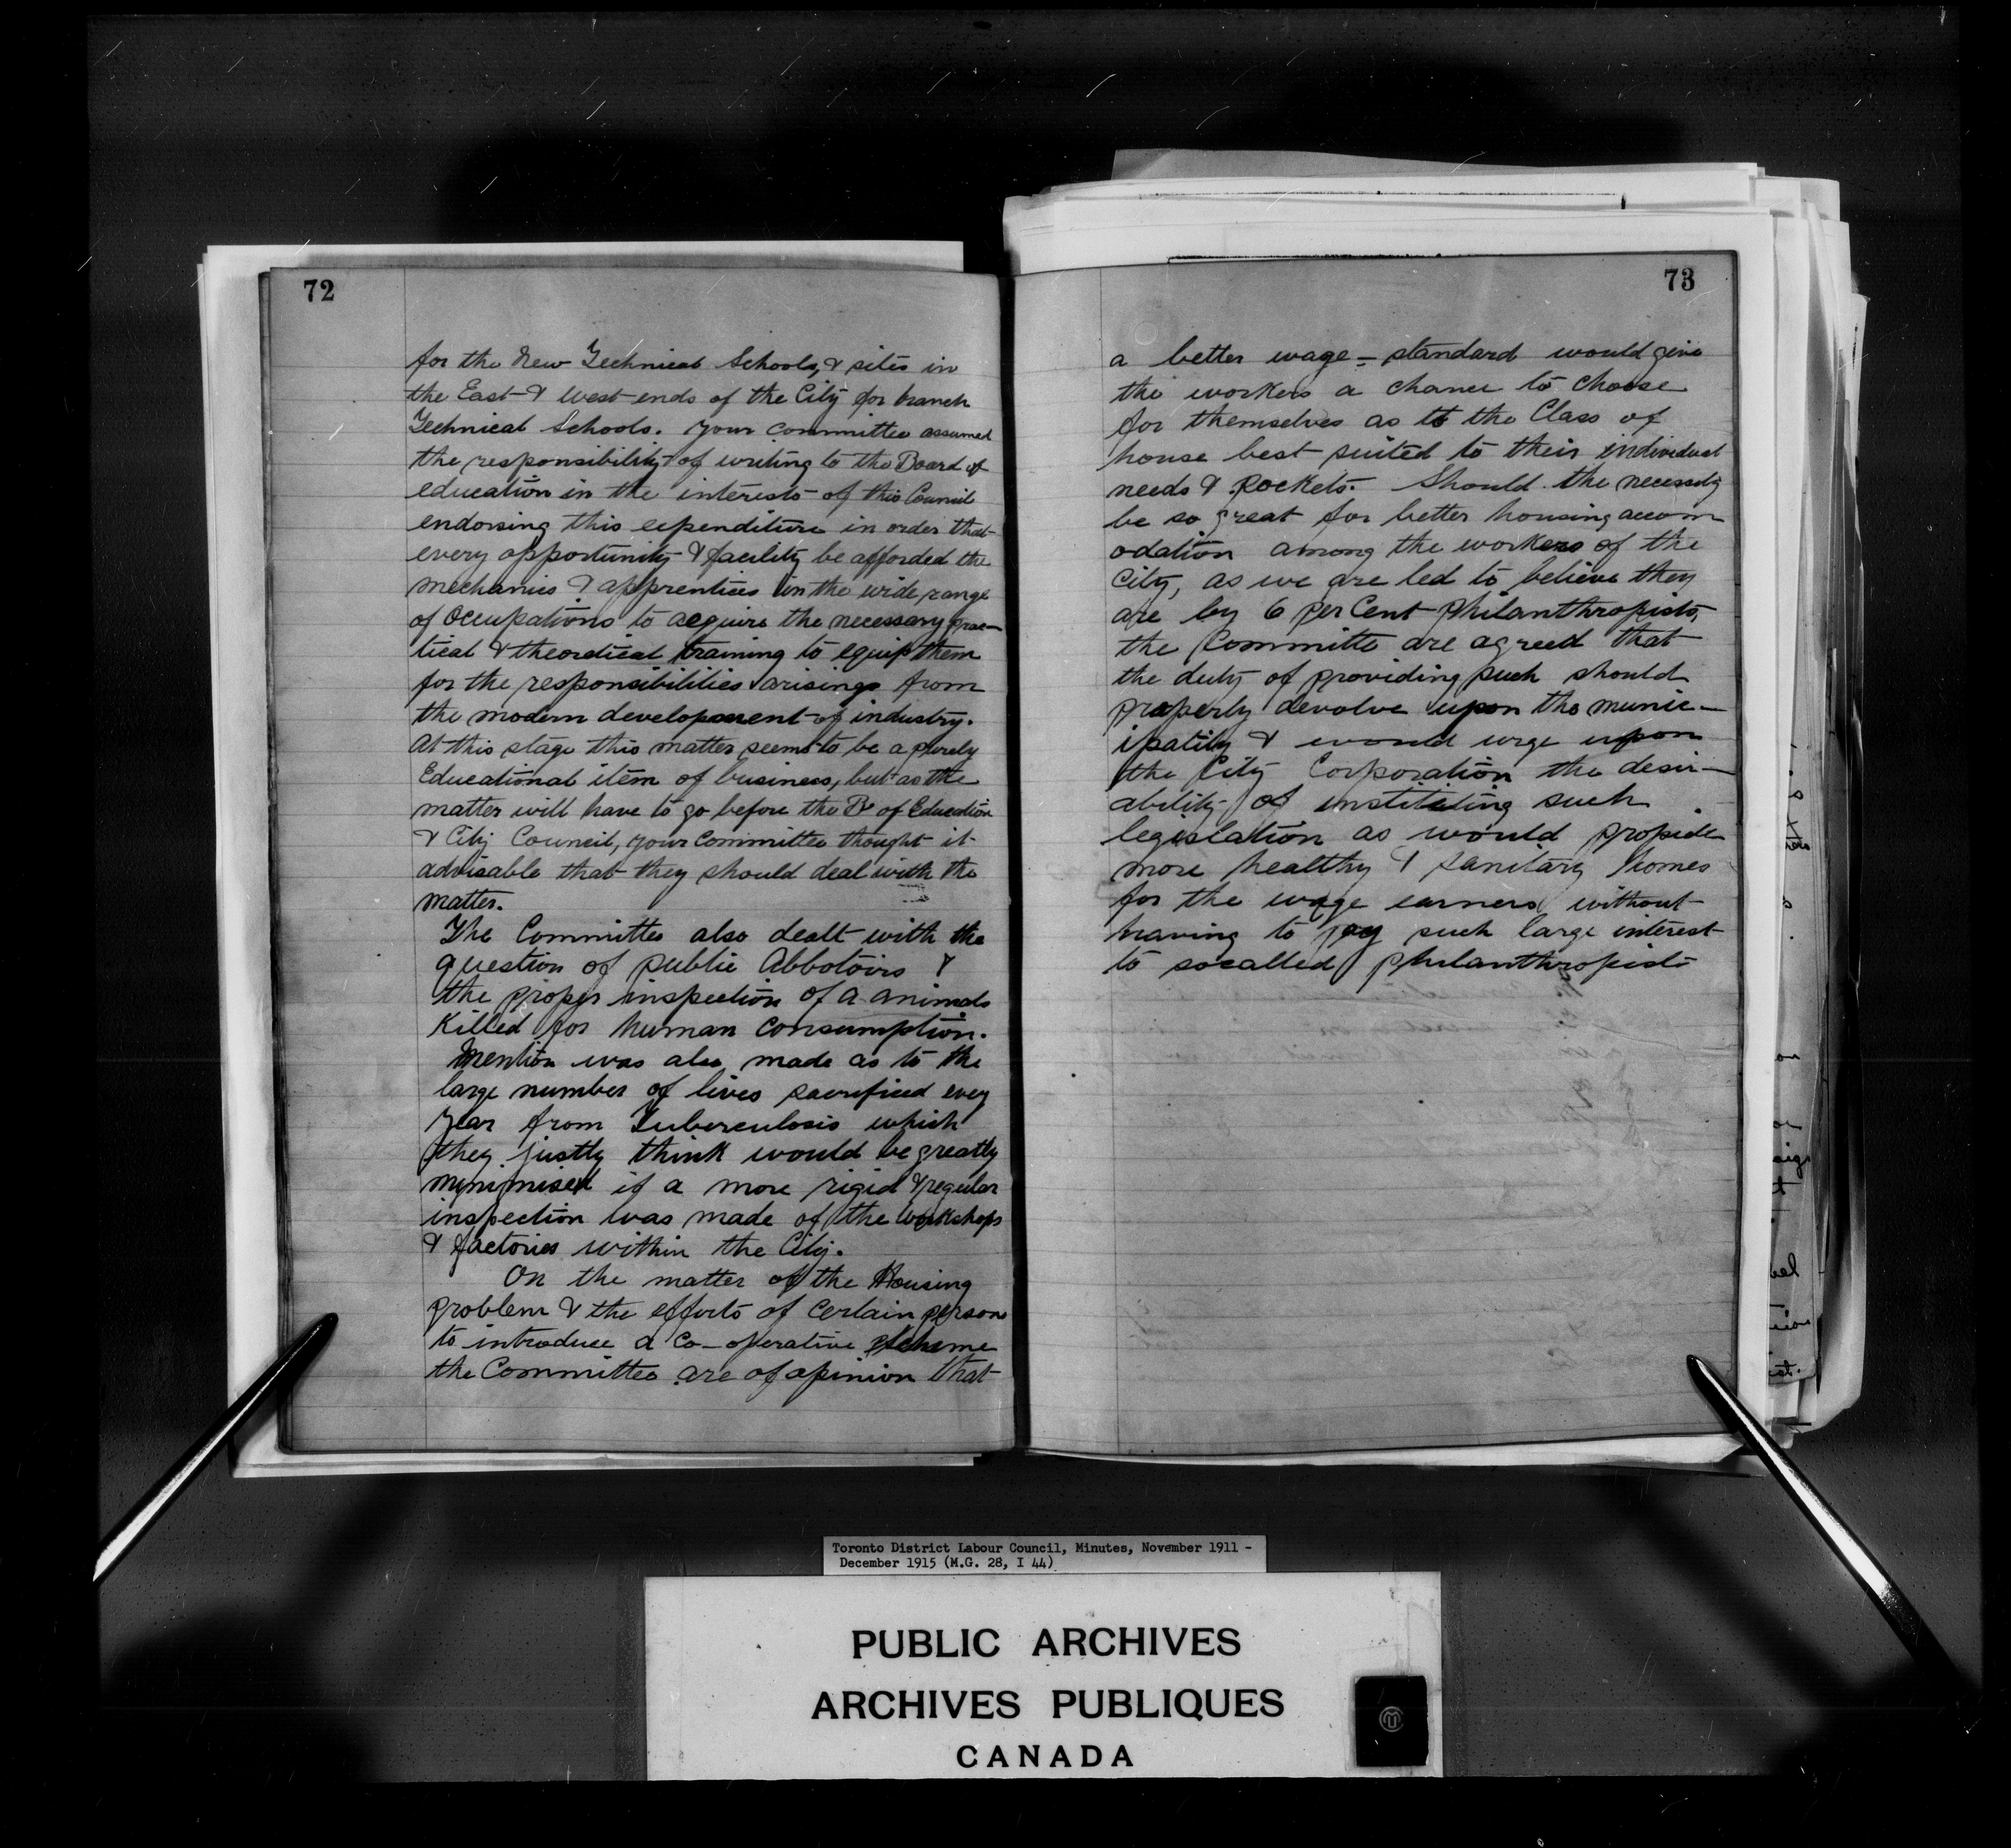 72
for the New Technical Schools, & sites in
the East & West ends of the City for branch
Technical Schools. Your Committee assumed
the responsibility of writing to the Board of
education in the interests of this Council
endorsing this expenditure in order that
every opportunity & facility be afforded the
mechanics & apprentices in the wide range
of Occupations to acquire the necessary prac-
tical & theoretical training to equip them
for the responsibilities arisings from
the modern development of industry.
At this stage this matter seems to be a purely
Educational item of business, but as the
matter will have to go before the B of Education
& City Council, your Committee thought it
advisable that they should deal with the
matter.
The Committee also dealt with the
question of public Abbotoirs &
the proper inspection of a animals
Killed for human Consumption.
Mention was also made as to the
large number of lives sacrificed every
year from Tuberculosis which
they justly think would be greatly
minimised if a more rigid & regular
inspection was made of the workshops
& factories within the City.
On the matter of the Housing
problem & the efforts of Certain persons
to introduce a Co-operative scheme
the Committee are of opinion that
73
a better wage-standard would give
the workers a chance to choose
for themselves as to the Class of
house best suited to their individual
needs & pockets. Should the necessity
be so great for better housing accom
odation among the workers of the
City, as we are led to believe they
are by 6 per Cent philanthropists,
the Committe are agreed that
the duty of providing such should
properly devolve upon the munic-
ipality & would urge upon
the City Corporation the desir-
ability of instituting such
legislation as would provide
more healthy & sanitary homes
for the wage earners without
having to pay such large interest
to socalled philanthropists
Toronto District Labour Council, Minutes, November 1911 -
December 1915 (M.G. 28, I 44)
PUBLIC ARCHIVES
ARCHIVES PUBLIQUES
CANADA